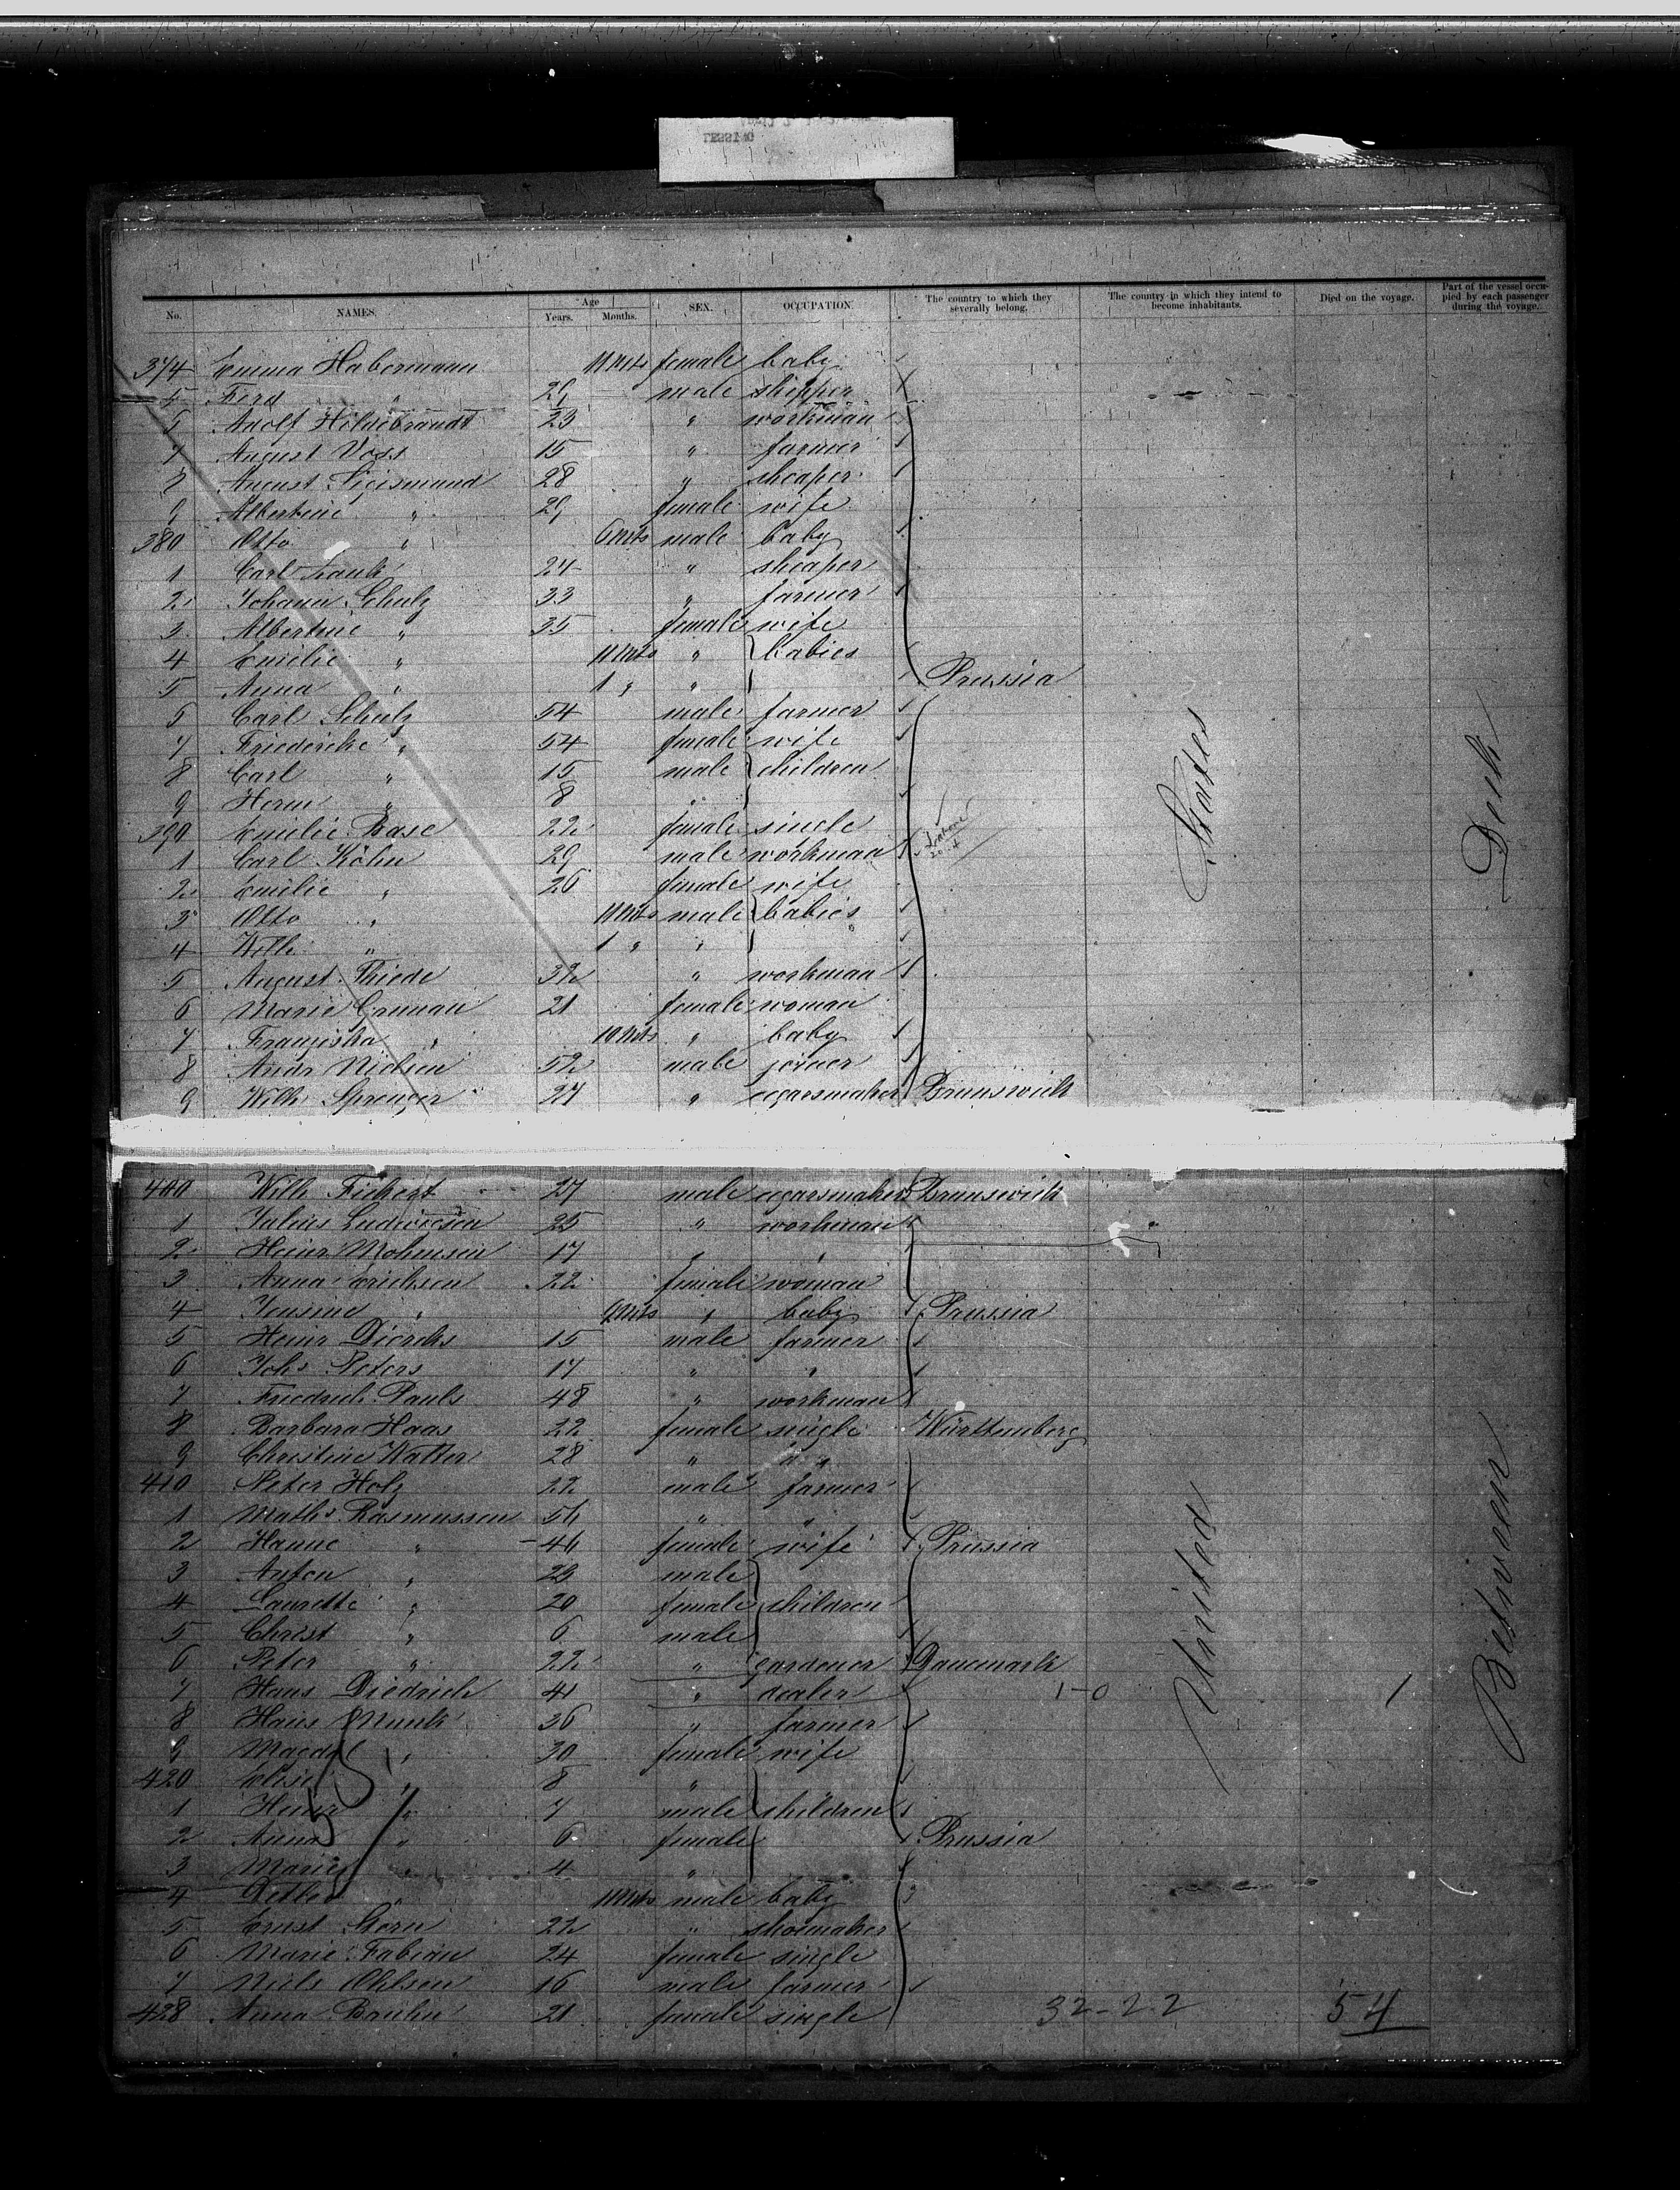 LESSING
No. NAMES. Age Years. Months. SEX. OCCUPATION. The country to which they severally belong. The country in which they intend to become inhabitants. Died on the voyage. Part of the vessel occupied by each passenger during the voyage.
374 Emma Habermann 11 Mts female baby
5 Ferd " 29 male
6 Adolf Hildebrandt 23 " workman
7 August Voss 15 " farmer
8 August Sigismund 28 " sheaper
9 Albertine " 29 female wife
380 Otto " 6 Mts male baby
1 Carl 24 " sheaper
2 Johann Schulz 33 " farmer
3 Albertine " 35 female wife
4 Emilie " 11 Mts " babies
5 Anna " 1 " " Prussia
6 Carl Schulz 54 male farmer
7 Friedericke " 54 female wife
8 Carl " 15 male children
9 Herm " 8 "
390 Emilie Base 22 female single
1 Carl Köhn 29 male workman
2 Emilie " 26 female wife
3 Otto " 11 Mts male babies
4 Willi " 1 " "
5 August Thiede 32 " workman
6 Marie 21 female woman
7 Franziska " 10 Mts " baby
8 Andr Nielsen 52 male joiner
9 Wilh Sprenger 27 " cigarsmaker Brunswick
400 Wilh Fickert 27 male cigarsmaker Brunswick
1 Julius Ludwigsen 25 " workman
2 Heinr Mohmsen 17 " "
3 Anna Erichsen 22 female woman
4 Jensine " Mts " baby Prussia
5 Heinr Diercks 15 male farmer
6 Johs Peters 17 " "
7 Friedrich Pauls 48 " workman
8 Barbara Haas 22 female single Württemberg
9 Christine Walter 28 " "
410 Peter Holz 22 male farmer
1 Maths Rasmussen 54 " "
2 Hanne " 44 female wife Prussia
3 Anton " 23 male
4 Laurette " 20 female children
5 Christ " 6 male
6 Peter " 22 " gardener Danemark
7 Hans Diedrich 41 " dealer 1-0 /
8 Hans Munk 36 " farmer
9 Magdal " 30 female wife
420 Elise " 8 "
1 Heinr " 7 male children
2 Anna " 6 female Prussia
3 Marie " 4 "
4 Detlev " 11 Mts male baby
5 Ernst Störn 22 " shoemaker
6 Marie Fabian 24 female single
7 Niels Ohlsen 16 male farmer
428 Anna Bruhn 21 female single 32-22 54
United States
Between Deck